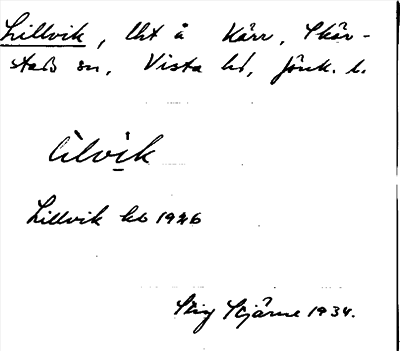 Lillvik, lht å Kärr, Skär-
stads sn, Vista hd, Jönk. l.
lìlvi̲k
Lillvik kb 1926
Stig Stjärne 1934.